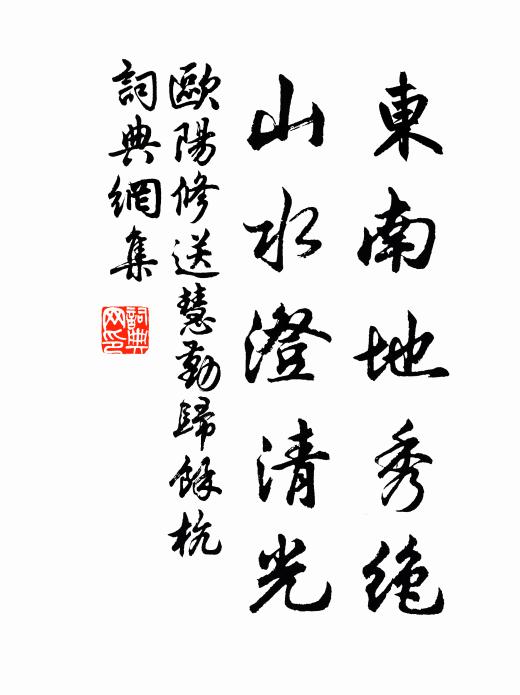 東南地秀絶
山水澄清光
歐陽修送慧勤歸餘杭
詞典網集
詞典
网印